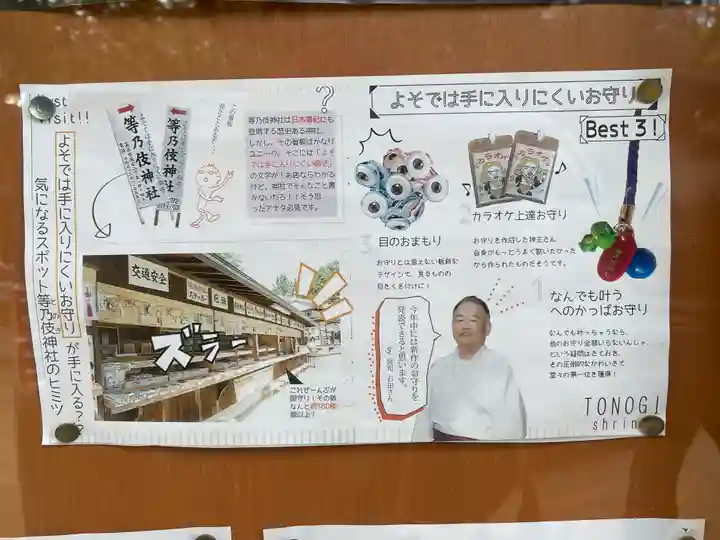 Must
visit!!
よそでは手に入りにくいお守りが手に入る？？
気になるスポット等乃伎神社のヒミツ
等乃伎神社
等乃伎神社
この看板
見たことある？
?
等乃伎神社は日本書紀にも
登場する歴史ある神社。
しかし、その看板はかなり
ユニーク。そこには「よそ
では手に入りにくい御守」
の文字が！お店ならわかる
けど、神社でそんなこと書
かないだろ！！そう思っ
たアナタ必見です。
交通安全
ズラー
これぜーんぶが
御守り！その数
なんと約580種
類以上！
よそでは手に入りにくいお守り
Best 3!
3
目のおまもり
お守りとは思えない斬新な
デザインで、見るものの
目をくぎ付けに！
カラオケ
カラオケ
2
カラオケ上達お守り
お守りを作成した神主さん
自身がもっとうまく歌いたかった
から作られたものだそうです。
1
なんでも叶う
へのかっぱお守り
なんでも叶っちゃうなら、
他のお守り全部いらないんじゃ、
という疑問はさておき、
その圧倒的なかわいさで
堂々の第一位を獲得！
今年中には新作のお守りを
発表できると思います。
by 宮司 石田さん
TONOGI
shrine